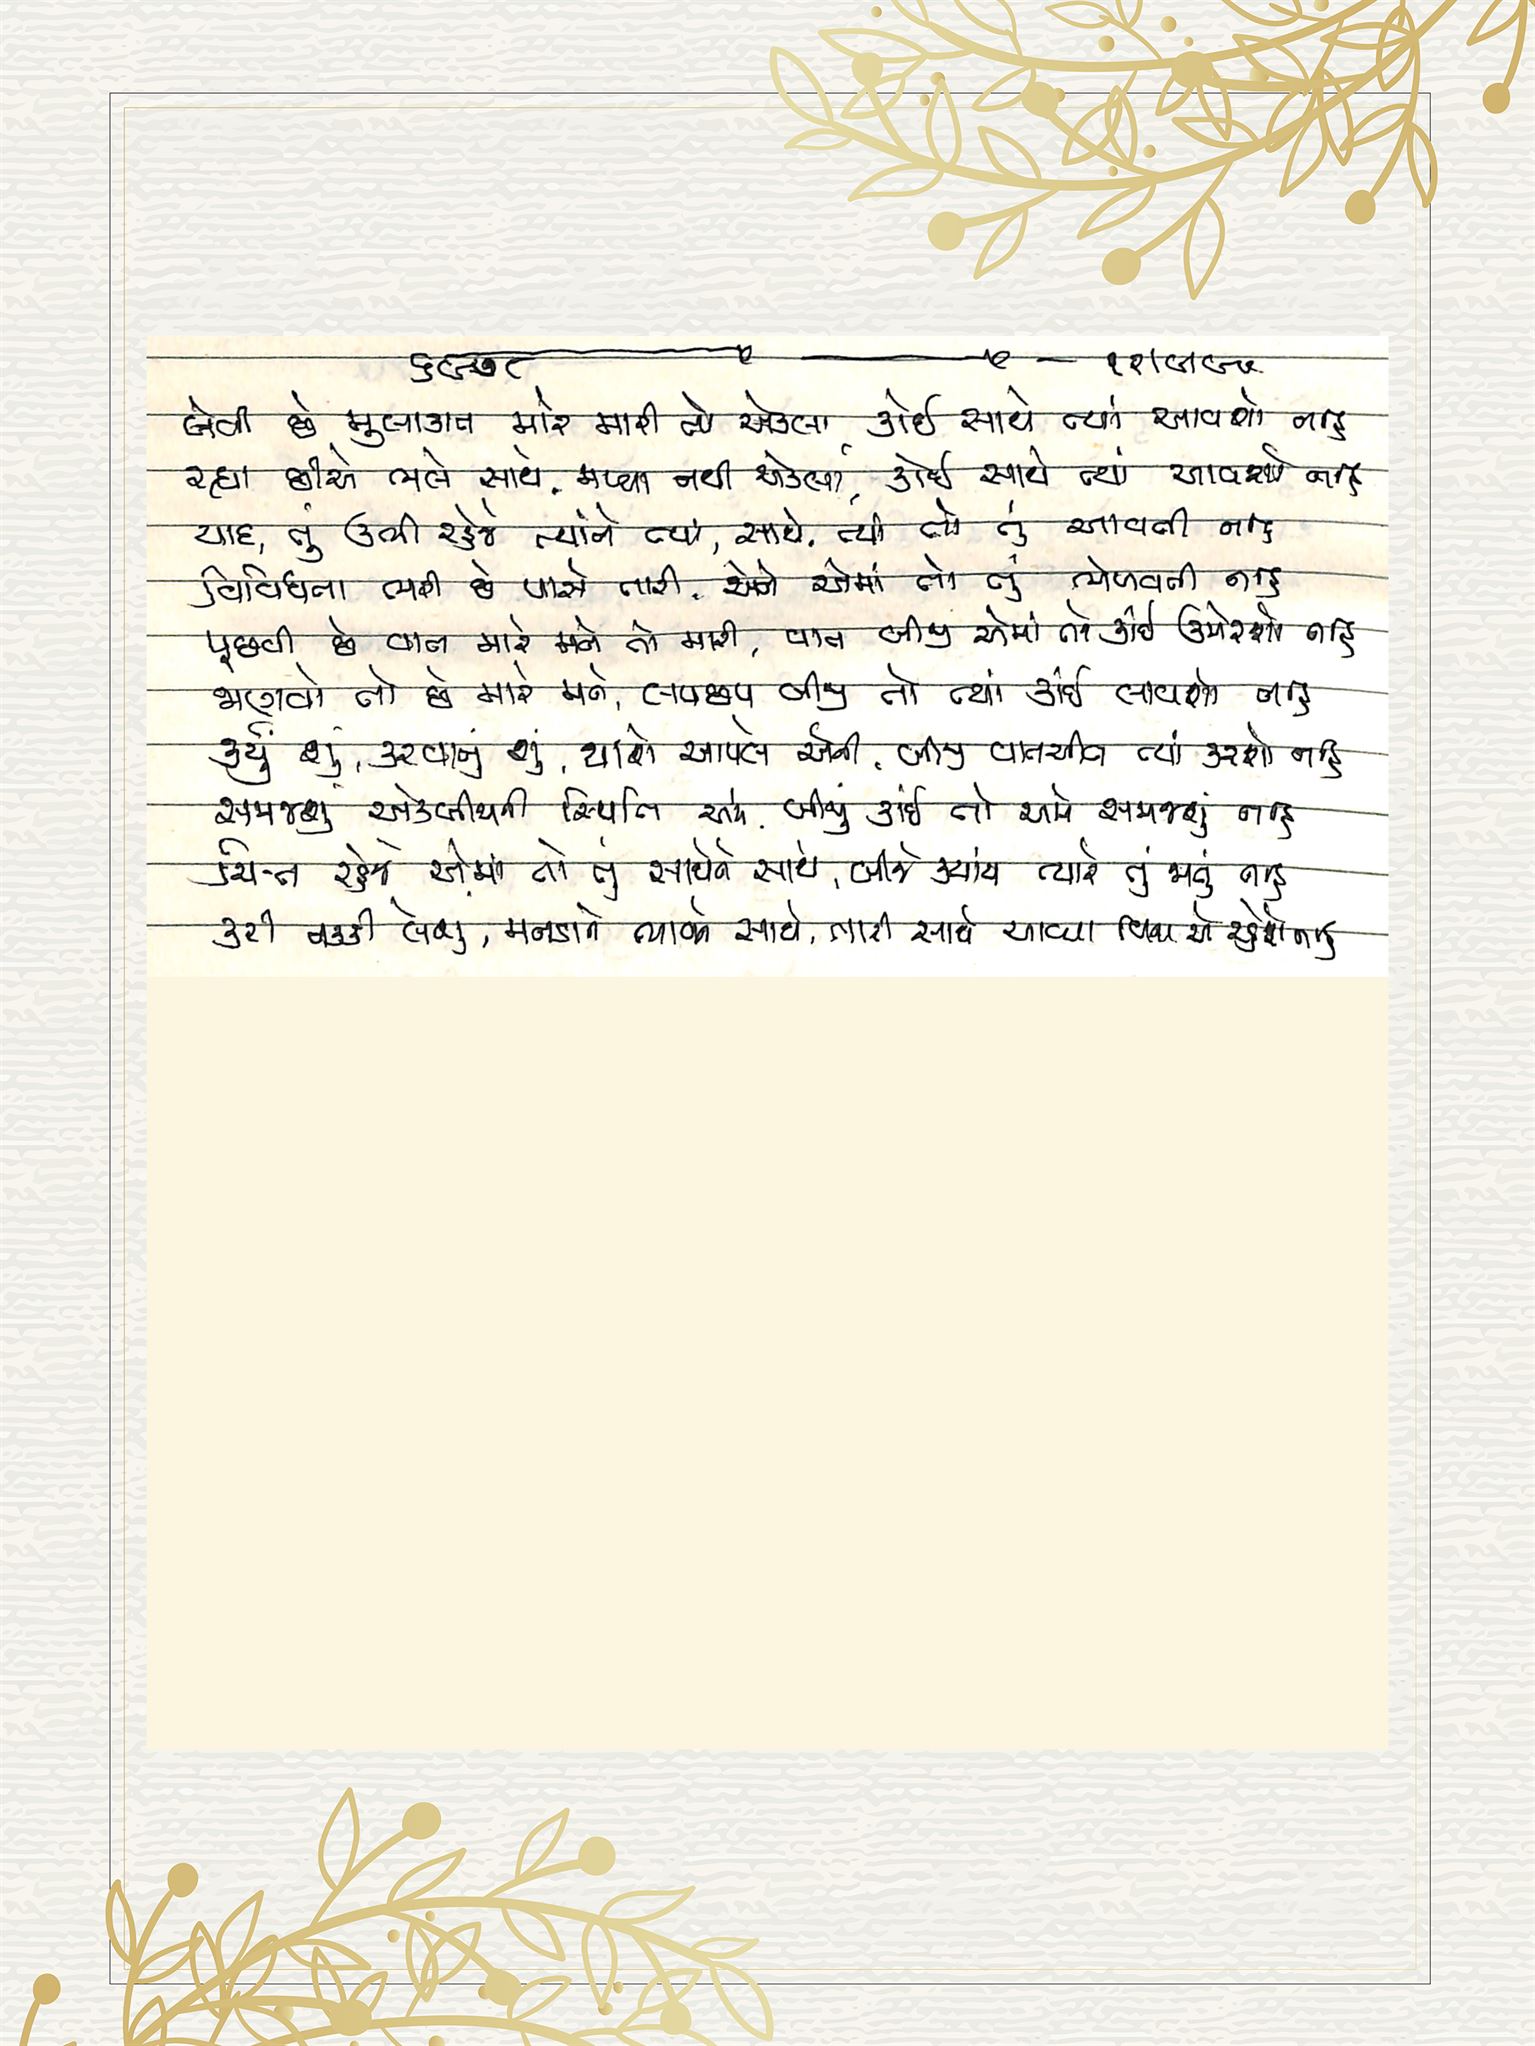 લેવી છે મુલાકાત મારે મારી તો એકલા, કોઈ સાથે ત્યાં આવશો નહિ
રહ્યા છીએ ભલે સાથે, મળ્યા નથી એકલા, કોઈ સાથે ત્યાં આવશો નહિ
યાદ, તું ઊભી રહેજે ત્યાંને ત્યાં, સાથે ત્યાં તો તું આવતી નહિ
વિવિધતા ભરી છે પાસે તારી, એને એમાં તો તું ભેળવતી નહિ
પૂછવી છે વાત મારે મને તો મારી, વાત બીજી એમાં તો કાંઈ ઉમેરશો નહિ
જાણવો તો છે મારે મને, લપછપ બીજી તો ત્યાં કાંઈ લાવશો નહિ
કર્યું શું, કરવાનું શું, થાશે આપલે એની, બીજી વાતચીત ત્યાં કરશો નહિ
સમજશું એકબીજાની સ્થિતિ અમે, બીજું કાંઈ તો અમે સમજશું નહિ
ચિત્ત રહેજે એમાં તો તું સાથેને સાથે, બીજે ક્યાંય ત્યારે તું જાતું નહિ
કરી નક્કી લેશું, મનડાને સાથે, તારી સાથે આવ્યા વિના એ રહેશે નહિ